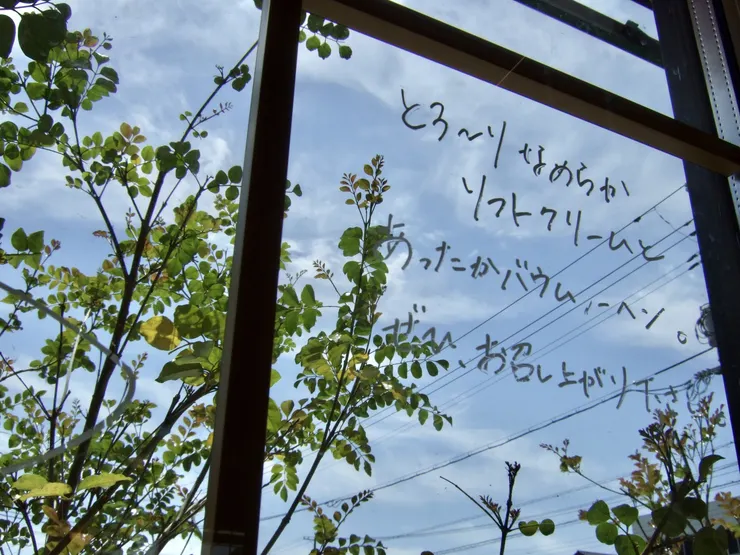 とろ〜り なめらか
ソフトクリームと
あったかバウムクーヘン。
ぜひ、お召し上がり下さい